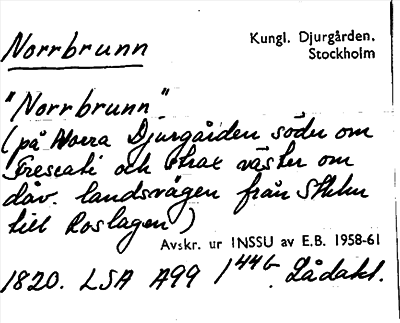 Norrbrunn
Kungl. Djurgården.
Stockholm
"Norrbrunn"
(på Norra Djurgården söder om
Frescati och strax väster om
dåv. landsvägen från Sthlm
till Roslagen)
Avskr. ur INSSU av E.B. 1958-61
1820. LSA A99 1446. Lådakt.